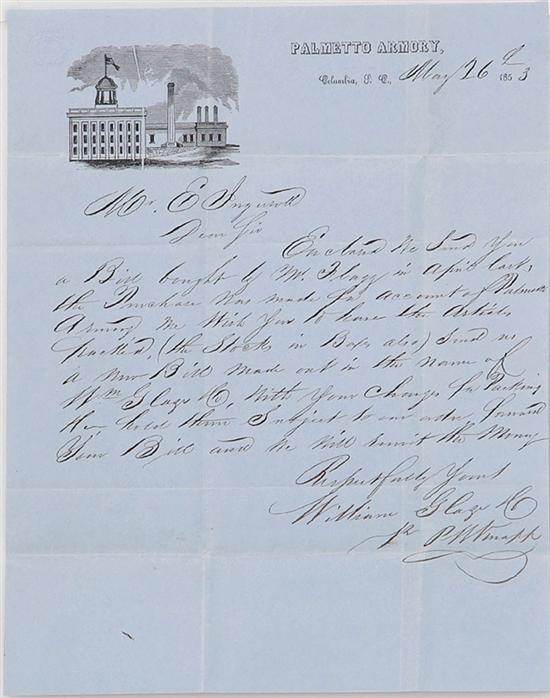 PALMETTO ARMORY,
Columbia, S. C., May 26th 1853
Mr. E Ingersoll
Dear Sir
Enclosed We Send You
a Bill bought by Mr. Flagg in April last,
the Purchase was made for account of Palmetto
Armory We Wish You to have the Articles
Packed, (the Stocks in Boxes also) Send us
a New Bill Made out in the name of
Wm Glaze & Co With Your Charges for Packing
& hold them Subject to our order, forward
Your Bill and We Will remit the Money
Respectfully Yours
William Glaze & Co